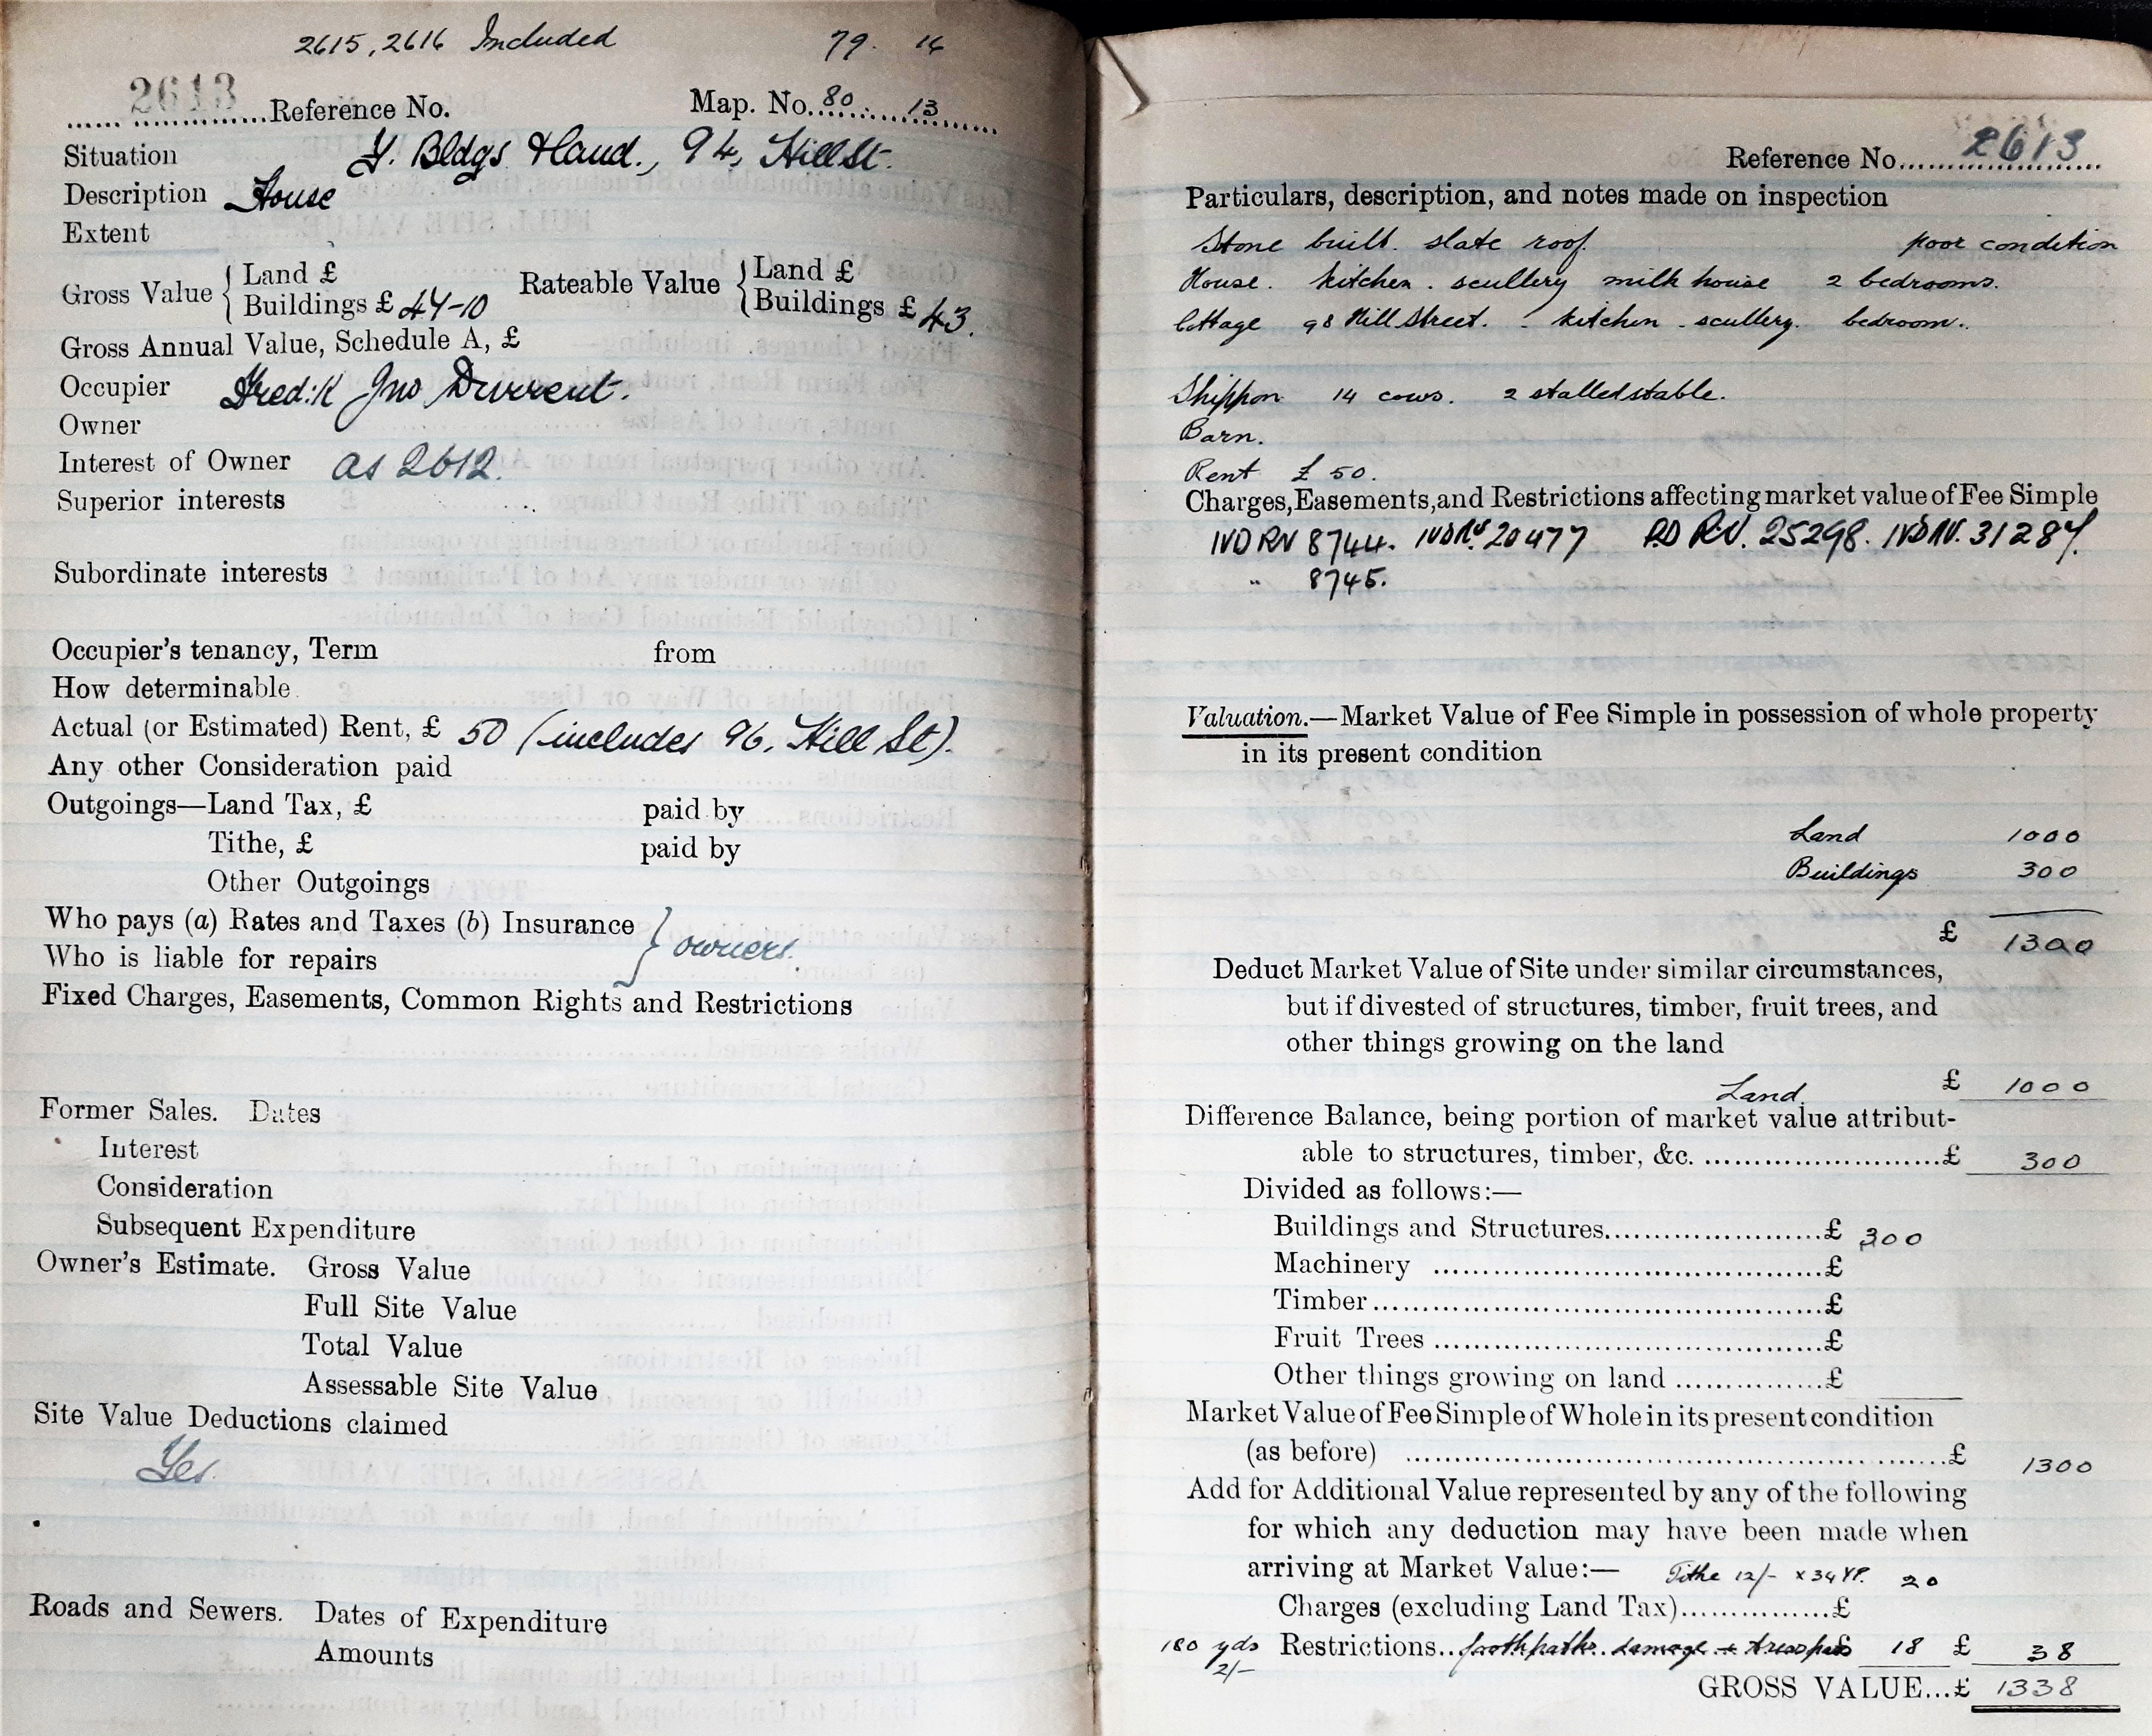 2615, 2616 Included 79. 14
2613 Reference No. Map. No. 80 13
Situation Y. Bldgs & Land., 94, Hill St.
Description House
Extent
Gross Value { Land £
Buildings £ 44-10
Rateable Value { Land £
Buildings £ 43.
Gross Annual Value, Schedule A, £
Occupier Fred:k Jno Durrent.
Owner
Interest of Owner as 2612.
Superior interests
Subordinate interests
Occupier's tenancy, Term from
How determinable
Actual (or Estimated) Rent, £ 50 (includes 96, Hill St).
Any other Consideration paid
Outgoings—Land Tax, £ paid by
Tithe, £ paid by
Other Outgoings
Who pays (a) Rates and Taxes (b) Insurance
Who is liable for repairs } owners.
Fixed Charges, Easements, Common Rights and Restrictions
Former Sales. Dates
Interest
Consideration
Subsequent Expenditure
Owner's Estimate. Gross Value
Full Site Value
Total Value
Assessable Site Value
Site Value Deductions claimed
Yes.
Roads and Sewers. Dates of Expenditure
Amounts
Reference No. 2613
Particulars, description, and notes made on inspection
Stone built. slate roof. poor condition
House. kitchen. scullery milk house 2 bedrooms.
Cottage 98 Hill Street. - kitchen - scullery. bedroom.
Shippon 14 cows. 2 stalled stable.
Barn.
Rent £ 50.
Charges, Easements, and Restrictions affecting market value of Fee Simple
IVD RV 8744. IVD RV. 20477 P.D R.V. 25298. IVD RV. 31287.
" 8745.
Valuation.—Market Value of Fee Simple in possession of whole property
in its present condition
Land 1000
Buildings 300
£ 1300
Deduct Market Value of Site under similar circumstances,
but if divested of structures, timber, fruit trees, and
other things growing on the land
Land. £ 1000
Difference Balance, being portion of market value attribut-
able to structures, timber, &c. ........................£ 300
Divided as follows:—
Buildings and Structures......................£ 300
Machinery ......................................£
Timber............................................£
Fruit Trees ......................................£
Other things growing on land ...............£
Market Value of Fee Simple of Whole in its present condition
(as before) ......................................................£ 1300
Add for Additional Value represented by any of the following
for which any deduction may have been made when
arriving at Market Value:— Tithe 12/- x 34 YP. 20
Charges (excluding Land Tax)...............£
180 yds Restrictions.. footpaths. damage + trespass 18 £ 38
2/-
GROSS VALUE...£ 1338